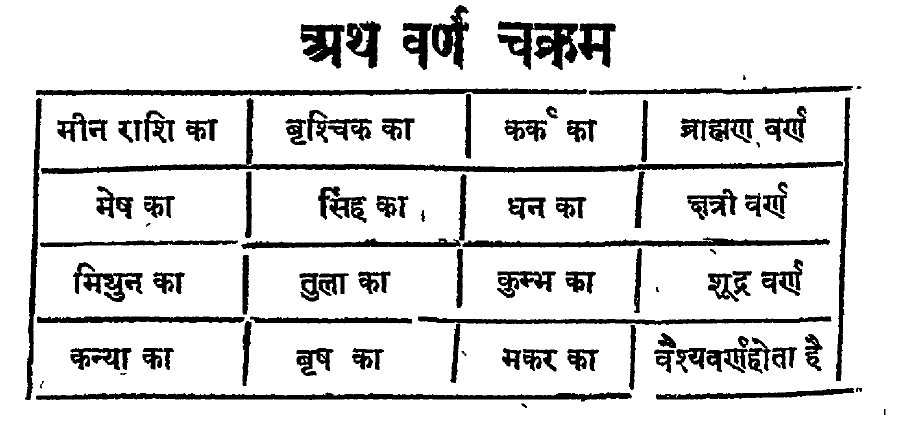 अथ वर्ण चक्रम
मीन राशि का बृश्चिक का कर्क का ब्राह्मण वर्ण
मेष का सिंह का धन का क्षत्री वर्ण
मिथुन का तुला का कुम्भ का शूद्र वर्ण
कन्या का बृष का मकर का वैश्यवर्णहोता है